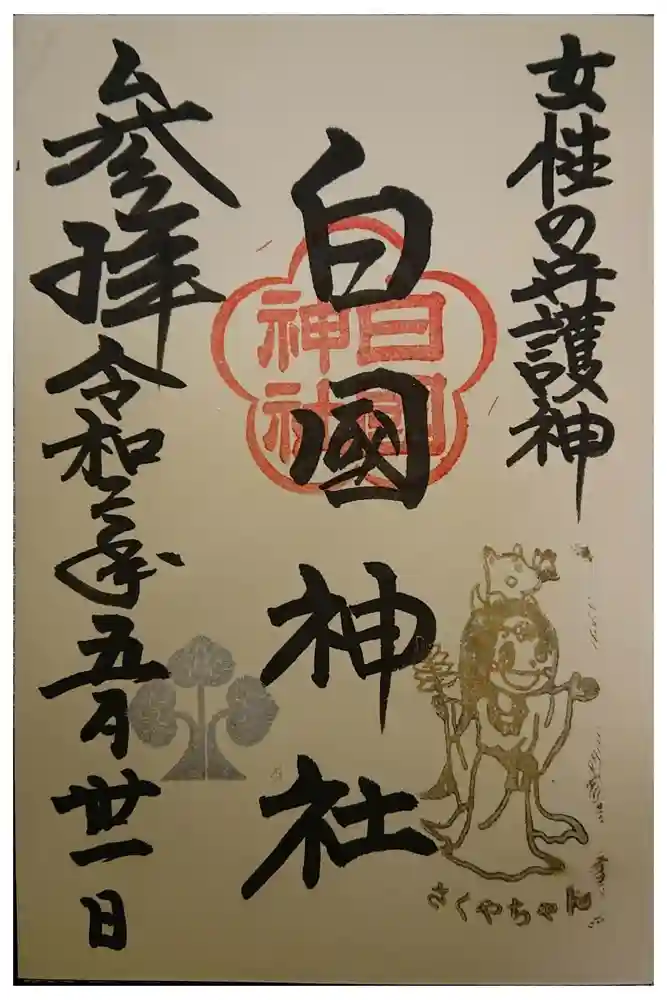 女性の守護神
白國神社
白国
神社
参拝
令和年五月丗一日
さくやちゃん